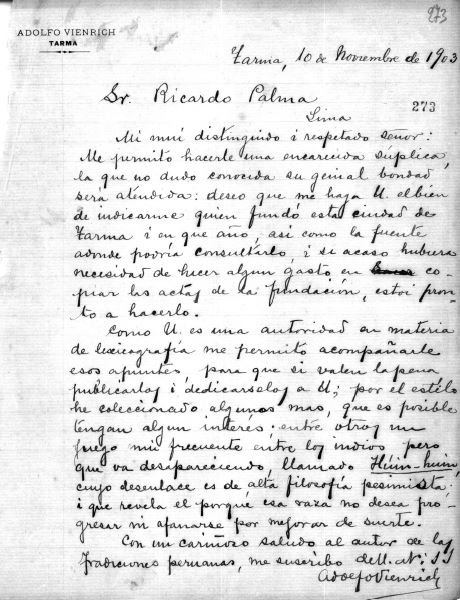 273
ADOLFO VIENRICH
TARMA
Tarma, 10 de Noviembre de 1903
Sr. Ricardo Palma
273
Lima
Mi mui distinguido i respetado señor:
Me permito hacerle una encarecida súplica,
la que no dudo conocida su genial bondad
será atendida: deseo que me haga U. el bien
de indicarme quien fundó esta ciudad de
Tarma i en que año, así como la fuente
adonde podría consultarlo, i si acaso hubiera
necesidad de hacer algun gasto, en co-
piar las actas de la fundación, estoi pron-
to a hacerlo.
Como U. es una autoridad en materia
de lexicografía me permito acompañarle
esos apuntes, para que si valen la pena
publicarlos i dedicarselos a U; por el estilo
he coleccionado algunos mas, que es posible
tengan algun interes: entre otros un
juego mui frecuente entre los indios pero
que va desapareciendo, llamado
cuyo desenlace es de alta filosofía pesimista:
i que revela el porqué esa raza no desea pro-
gresar ni afanarse por mejorar de suerte.
Con un cariñoso saludo al autor de las
Tradiciones peruanas, me suscribo de U. At. S S
Adolfo Vienrich